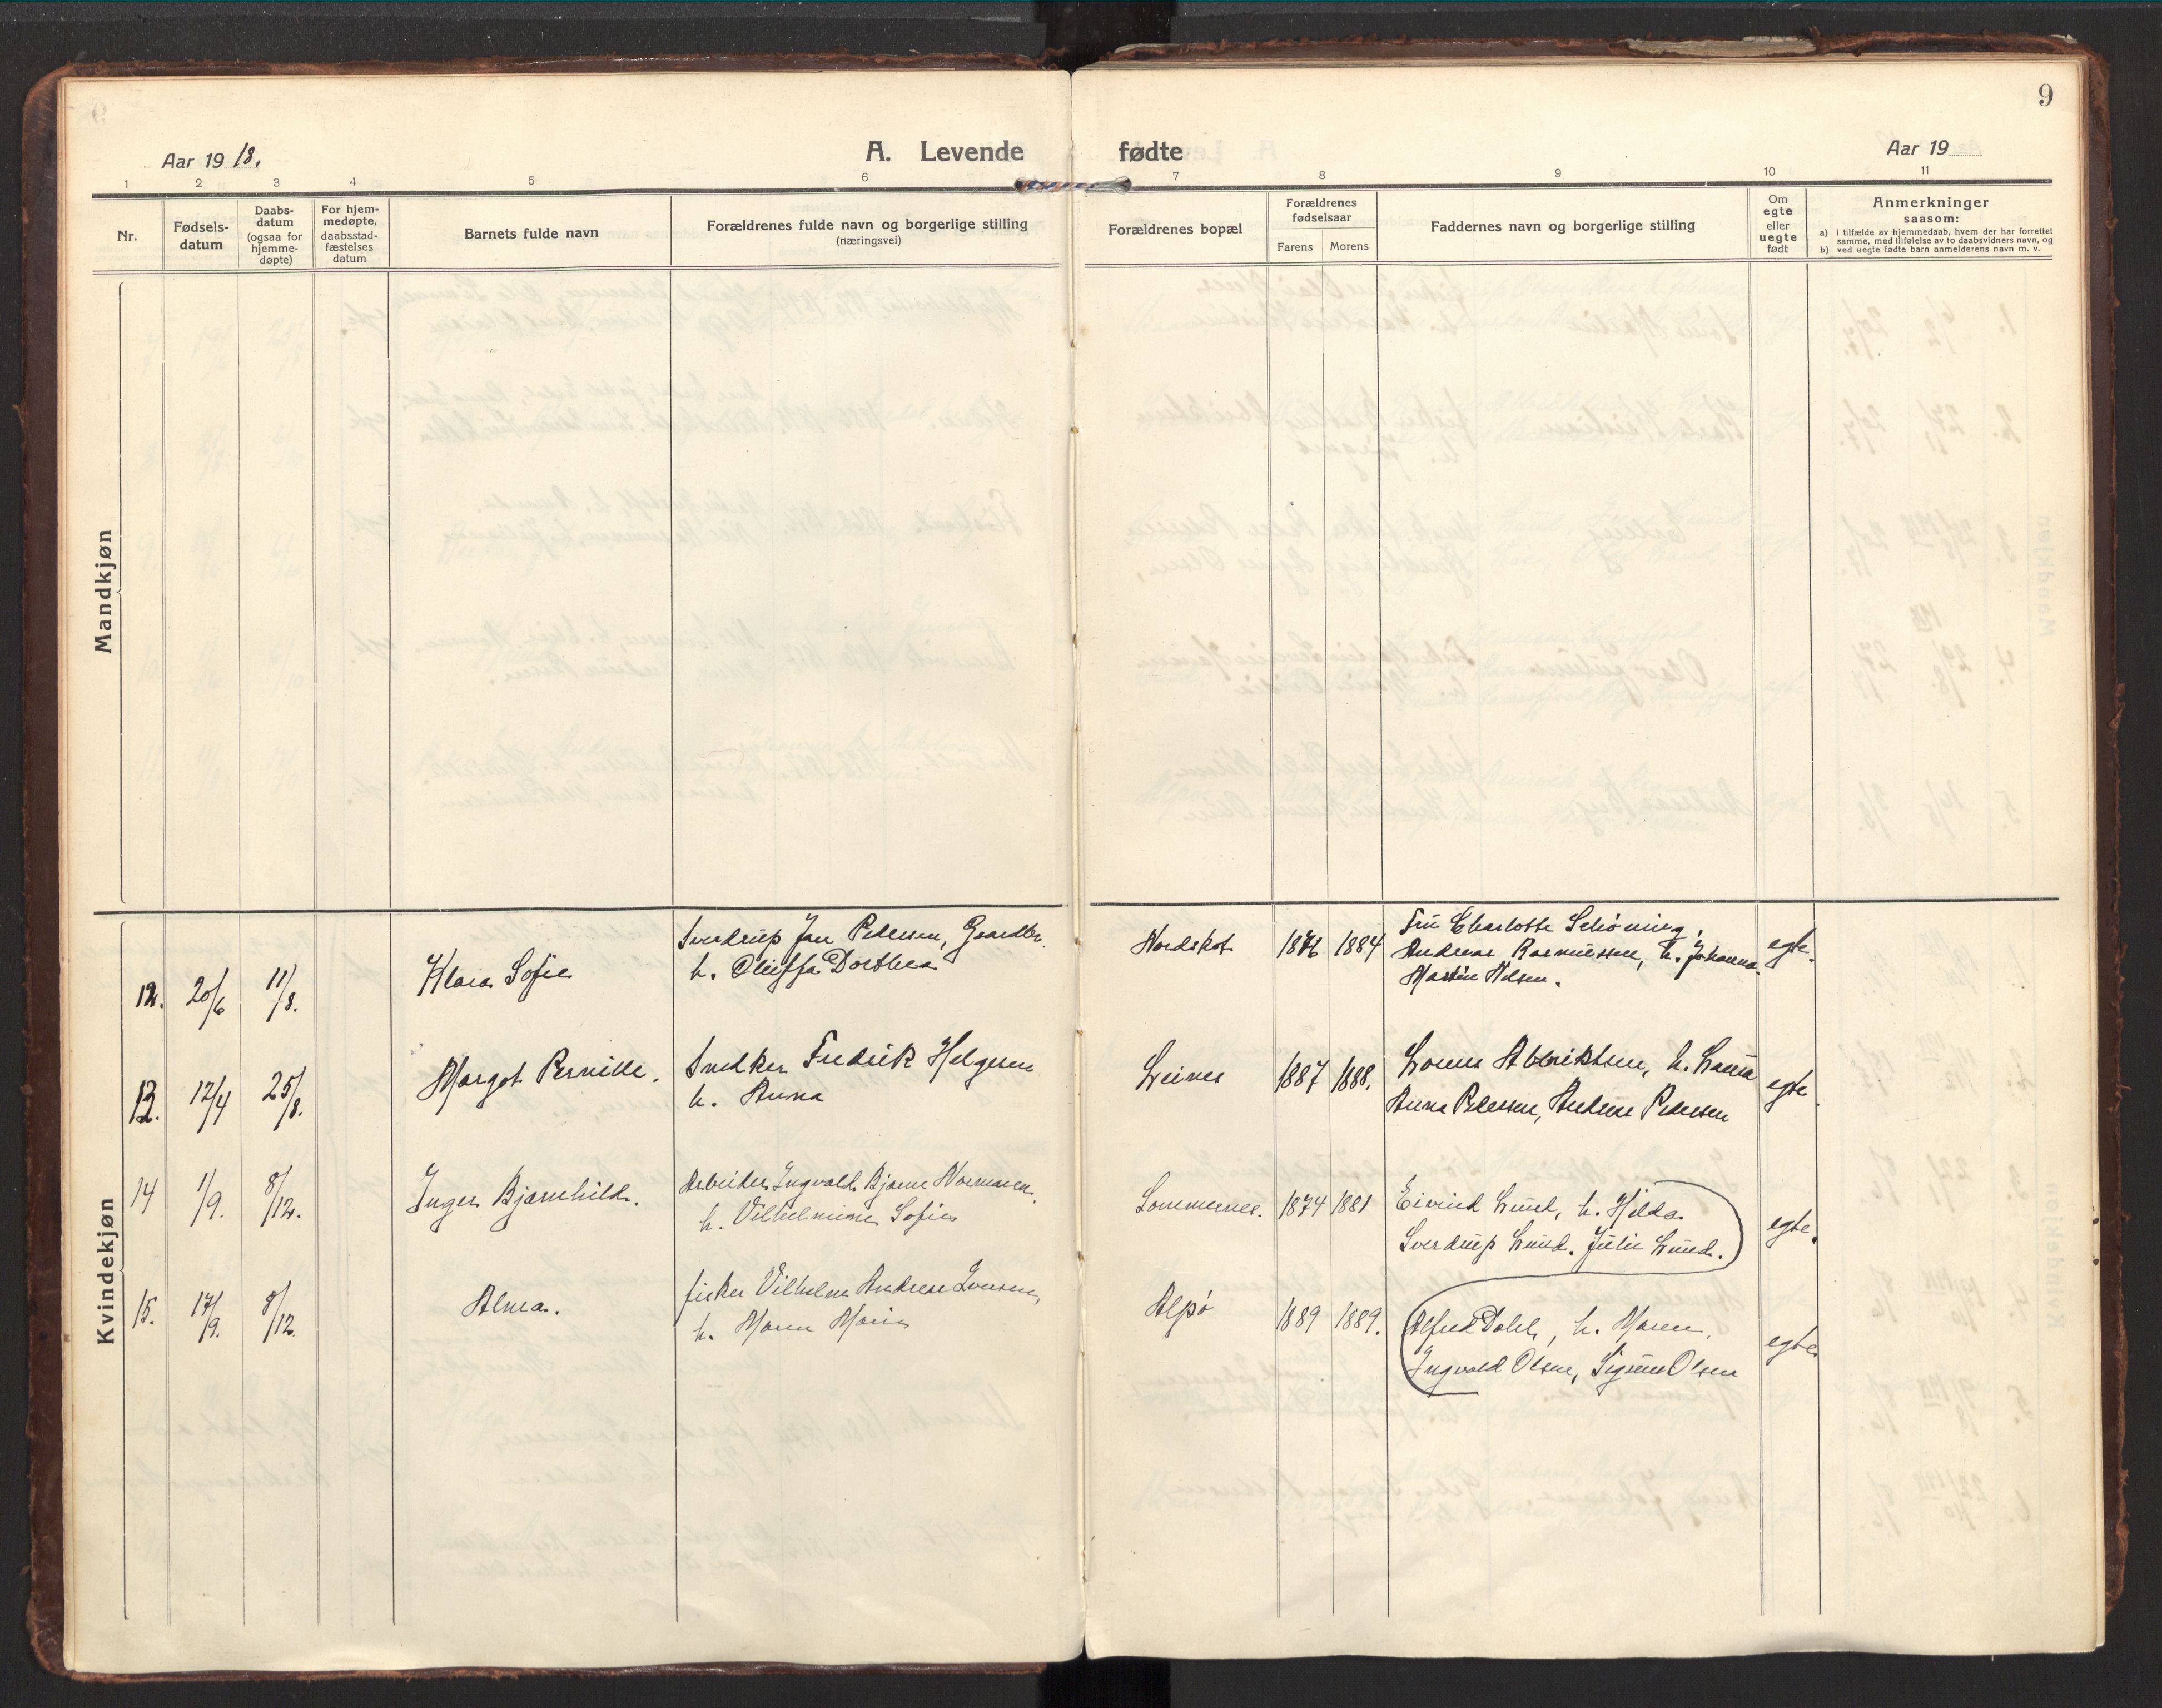 9
Aar 1918.
A. Levende
fødte
Aar 19
1 2 3 4 5 6 7 8 9 10 11
Nr.
Fødsels-
datum
Daabs-
datum
(ogsaa for
hjemme-
døpte)
For hjem-
medøpte,
daabsstad-
fæstelses
datum
Barnets fulde navn
Forældrenes fulde navn og borgerlige stilling
(næringsvei)
Forældrenes bopæl
Forældrenes
fødselsaar
Farens Morens
Faddernes navn og borgerlige stilling
Om
egte
eller
uegte
født
Anmerkninger
saasom:
a) i tilfælde av hjemmedaab, hvem der har forrettet
samme, med tilføielse av to daabsvidners navn, og
b) ved uegte fødte barn anmelderens navn m. v.
Mandkjøn
Kvindekjøn
12. 20/6 11/8. Klara Sofie
Sverdrup Jan Pedersen, Gaardbr.
h. Oleiffa Dorthea
Nordskot 1876 1884
Fru Charlotte Schøning,
Andreas Rasmussen, h. Johanna
Martin Nilsen.
egte.
13. 12/4 25/8. Margot Pernille.
Snedker Fredrik Helgesen
h. Anna
Leines 1887 1888.
Lorents Albriktsen, h. Laura
Anna Pedersen, Andreas Pedersen
egte.
14 1/9. 8/12. Inger Bjarnhild.
Arbeider Ingvald Bjarne Normann.
h. Vilhelmine Sofie
Sommernes. 1874 1881
Eivind Lund, h. Hilda
Sverdrup Lund. Julie Lund.
egte.
15. 17/9. 8/12. Alma.
fisker Vilhelm Andreas Iversen,
h. Maren Marie
Alpø 1889 1889.
Alfred Dahl, h. Maren,
Ingvald Olsen, Sigrun Olsen
egte